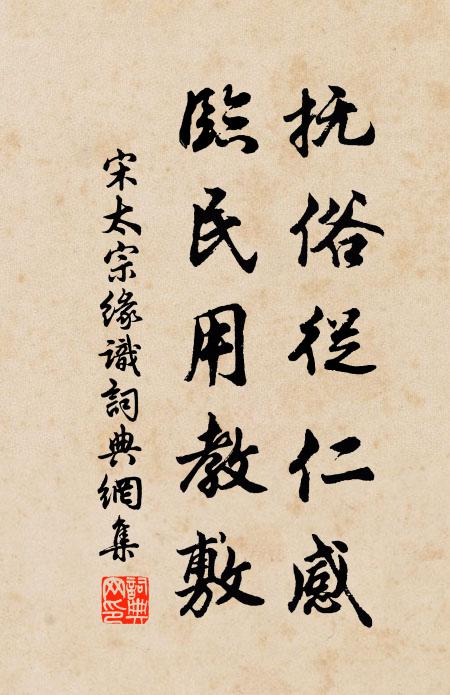 抚俗從仁感
臨民用教敷
宋太宗緣識詞典網集
詞典网印